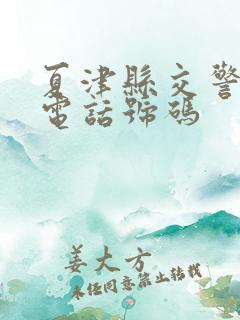 夏津縣交警
電話號碼
姜大方
未经同意禁止转载